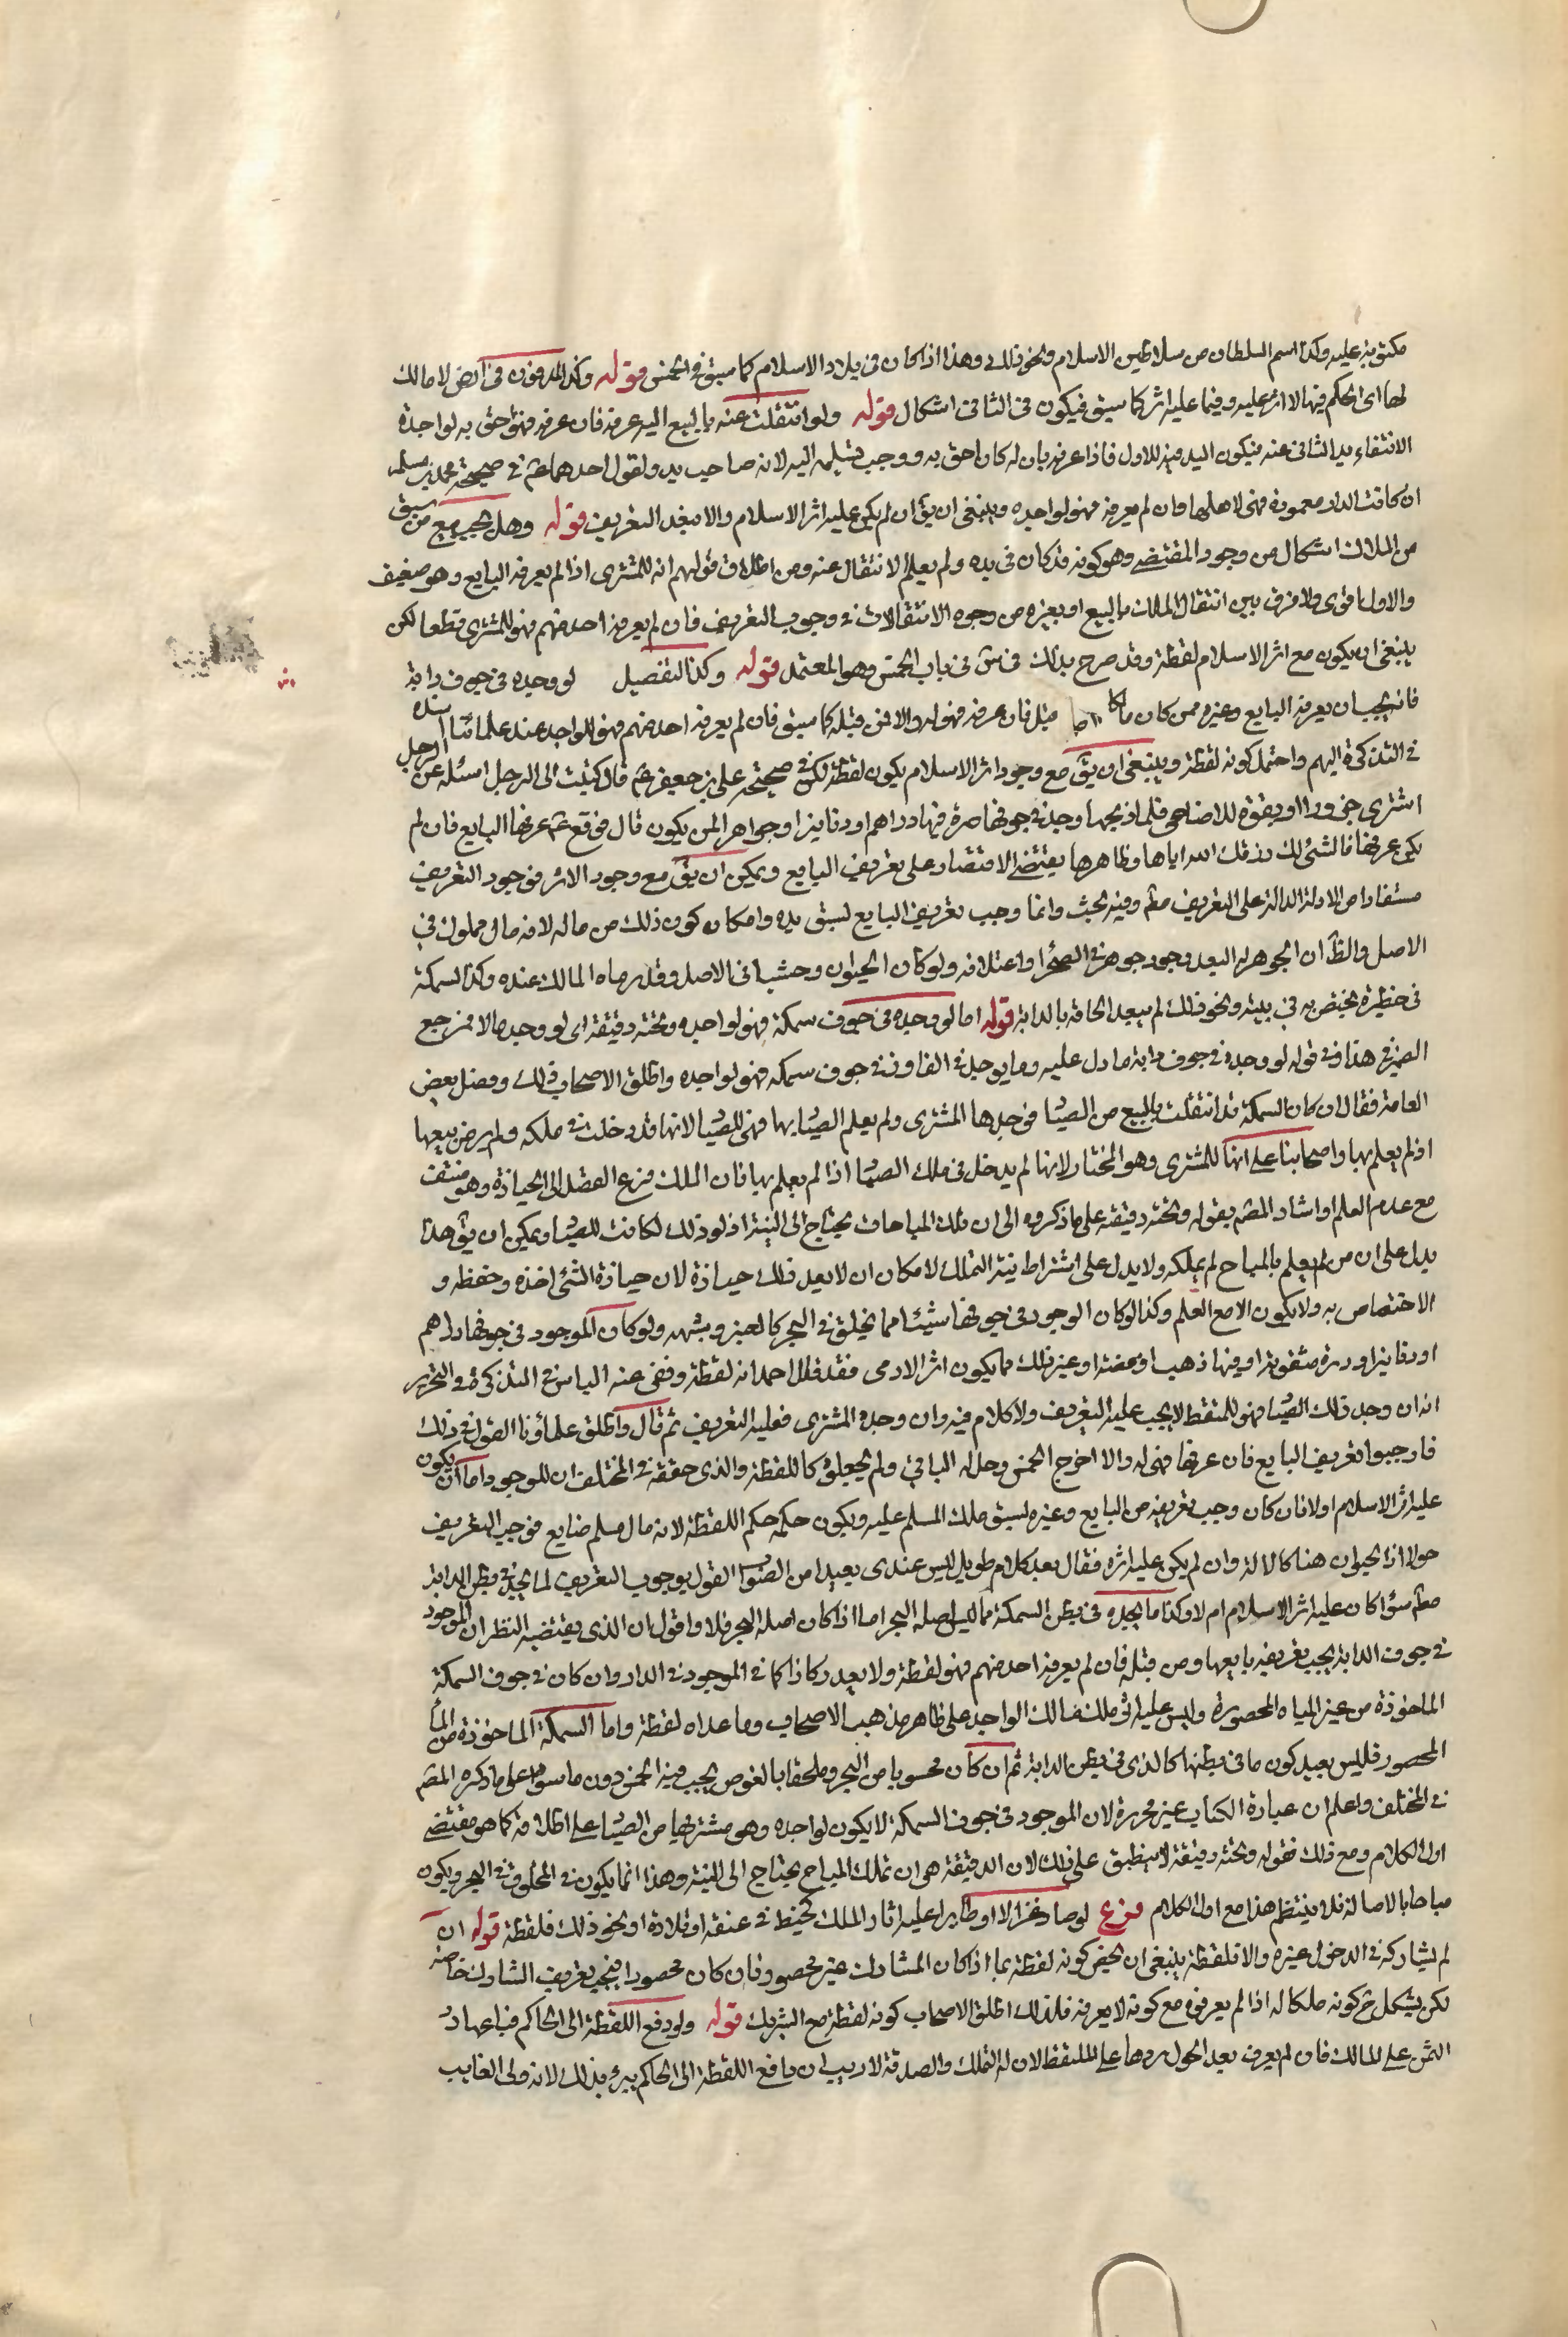 مكتوبة عليه وكذا اسم السلطان من سلاطين الاسلام ونحو ذلك وهذا اذا كان في بلاد الاسلام كما سبق في الخمس قوله وكذا المدفون في ارض لا مالك
لها اى الحكم فيها لا اثر عليه وفيما عليه اثر كما سبق فيكون في الثاني اشكال قوله ولو انتقلت عنه بالبيع اليه عرفه فان عرفه فهو احق به لواجده
الانتفاء يد الثاني عنه فيكون اليد فيه للاول فاذا عرفه بان له كان احق به ووجب تسليمه اليه لانه صاحب يد ولقول احدهما ع في صحيحة محمد بن مسلم
ان كانت الدار معمورة فهي لاهلها فان لم يعرفه فهو لواجده وينبغي ان يق ان لم يكن عليه اثر الاسلام والا فبعد التعريف قوله وهل يجب تتبع من سبق
من الملاك اشكال من وجود المقتضي وهو كونه قد كان في يده ولم يعلم الانتقال عنه ومن اطلاق قولهم انه للمشتري اذا لم يعرفه البايع وهو ضعيف
والاول اقوى ولا فرق بين انتقال الملك بالبيع او بغيره من وجوه الانتقالات في وجوب التعريف فان لم يعرفه احد منهم فهو للمشتري قطعا لكن
ينبغي ان يكون مع اثر الاسلام لقطة وقد صرح بذلك في س في باب الخمس وهو المعتمد قوله وكذا التفصيل لو وجده في جوف دابة
فانه يجب ان يعرفه البايع وغيره ممن كان مالكا قبل فان عرفه فهو له والا فمن قبله كما سبق فان لم يعرفه احد منهم فهو للواجد عند علمائنا اسنده
في التذكرة اليهم واحتمل كونه لقطة وينبغي ان يق مع وجود اثر الاسلام يكون لقطة لكن في صحيحة علي بن جعفر ع قال كتبت الى الرجل اسئله عن رجل
اشترى جزورا او بقرة للاضاحي فلما ذبحها وجد في جوفها صرة فيها دراهم او دنانير او جواهر لمن يكون قال فوقع ع عرفها البايع فان لم
يكن عرفها فالشئ لك رزقك الله اياها وظاهرها يقتضي الاقتصار على تعريف البايع ويمكن ان يق مع وجود الاثر فوجود التعريف
مستفاد من الادلة الدالة على التعريف مط وفيه بحث وانما وجب تعريف البايع لسبق يده وامكان كون ذلك من ماله لانه مال مملوك في
الاصل والظ ان الجوهر له البعد وجود جوهر في الصحرا واعتلافه ولو كان الحيوان وحشيا في الاصل وقد رماه المالك عنده وكذا السمكة
في حظيرة يختص به في بيته ونحو ذلك لم يبعد الحاقه بالدابة قوله اما لو وجده في جوف سمكة فهو لواجده وتحته دقيقة اى لو وجد مالا فمرجع
الضمير في هذا وفي قوله لو وجده في جوف دابة ما دل عليه وما يوجد في المفاوز في جوف سمكه فهو لواجده واطلق الاصحاب ذلك وفصل بعض
العامة فقال ان كان السمكة قد انتقلت بالبيع من الصياد فوجدها المشتري ولم يعلم الصياد بها فهي للصياد لانها قد دخلت في ملكه ولم يرض ببيعها
اذ لم يعلم بها واصحابنا على انها للمشتري وهو المختار لانها لم يدخل في ملك الصياد اذا لم يعلم بها فان الملك فرع القصد الى الحيازة وهو منتف
مع عدم العلم او اشار المصنف بقوله وتحته دقيقة على ما ذكروه الى ان تملك المباحات يحتاج الى النية اذ لو ذلك لكانت للصياد ويمكن ان يق هذا
يدل على ان من لم يعلم بالمباح لم يملكه ولا يدل على اشتراط نية التملك لامكان ان لا يعد ذلك حيازة لان حيازة الشئ اخذه وحفظه و
الاختصاص به ولا يكون الا مع العلم وكذا لو كان الموجود في جوفها شيئا مما يخلق في البحر كالعنبر وشبهه ولو كان الموجود في جوفها دراهم
او دنانير او درة مثقوبة او فيها ذهب او فضة او غير ذلك مما يكون اثر الادمى فقد قال احمد انه لقطة ونفى عنه الباس في التذكرة والتحرير
انه ان وجد ذلك الصياد فهو للملتقط لا يجب عليه التعريف ولا كلام فيه وان وجده المشتري فعليه التعريف ثم قال واطلق علماؤنا القول في ذلك
فاوجبوا تعريف البايع فان عرفها فهي له والا اخرج الخمس وحل له الباقي ولم يجعلوه كاللقطة والذي حققه في المختلف ان الموجود اما ان يكون
عليه اثر الاسلام اولا فان كان وجب تعريفه من البايع وغيره لسبق ملك المسلم عليه ويكون حكمه حكم اللقطة لانه مال مسلم ضايع فوجب التعريف
حولا اذ الحيوان هنا كالالة وان لم يكن عليه اثره فقال بعد كلام طويل ليس عندي بعيدا من الصواب القول بوجوب التعريف لما يجده في بطن الدابة
مط سواء كان عليه اثر الاسلام ام لا وكذا ما يجده في بطن السمكة مما ليس اصله البحر اما اذا كان اصله البحر فلا واقول ان الذي يقتضيه النظر ان الموجود
في جوف الدابة يجب تعريفه بايعها ومن قبله فان لم يعرفه احد منهم فهو لقطة ولا يعد ركازا كما في الموجود في الدار وان كان في جوف السمكة
الماخوذة من غير المياه المحصورة وليس عليه اثر ملك فذلك الواجد على ظاهر مذهب الاصحاب وما عداه لقطة واما السمكة الماخوذة من الماء
المحصور فليس بعيد كون ما في بطنها كالذي في بطن الدابة ثم ان كان محسوبا من البحر وملحقا بالغوص يجب فيه الخمس دون ما سواه على ما ذكره المصنف
في المختلف واعلم ان عبارة الكتاب غير محررة لان الموجود في جوف السمكة لا يكون لواجده وهو مشتريها من الصياد على اطلاقه كما هو مقتضى
اول الكلام ومع ذلك فقوله وتحته دقيقة لا ينطبق على ذلك لان الدقيقة هي ان تملك المباح يحتاج الى النية وهذا انما يكون في المخلوق في البحر ويكون
مباحا بالاصالة فلا ينتظم هذا مع اول الكلام فرع لو صاد غزالا او طايرا عليه اثار الملك كخيط في عنقه او قلادة او نحو ذلك فلقطة قوله ان
لم يشاركه في الدخول غيره والا فلقطة ينبغي ان يخص كونه لقطة بما اذا كان المشارك غير محصور فان كان محصورا فيجب تعريف المشارك خاصة
لكن يشكل ح كونه ملكا له اذا لم يعرفوه مع كونه لا يعرفه فلذلك اطلق الاصحاب كونه لقطة مع الشريك قوله ولو دفع اللقطة الى الحاكم فباعها رد
الثمن على المالك فان لم يعرف بعد الحول ردها على الملتقط لان له التملك والصدقة لا ريب ان دافع اللقطة الى الحاكم يبرء بذلك لانه ولى الغايب